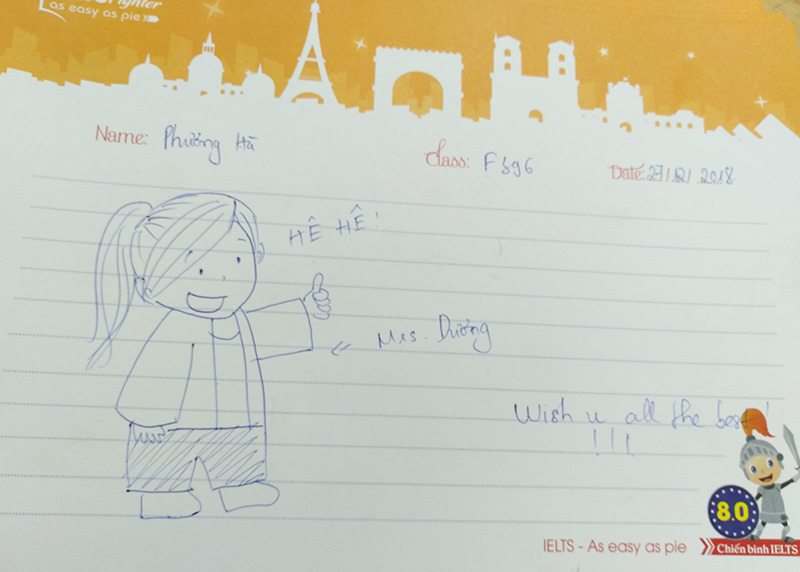 fighter
as easy as pie
Name: Phương Hà
Class: F896
Date: 27/12/2018
HÊ HÊ!
Mrs. Dương
Wish u all the best!
!!!
8.0
IELTS - As easy as pie
Chiến binh IELTS